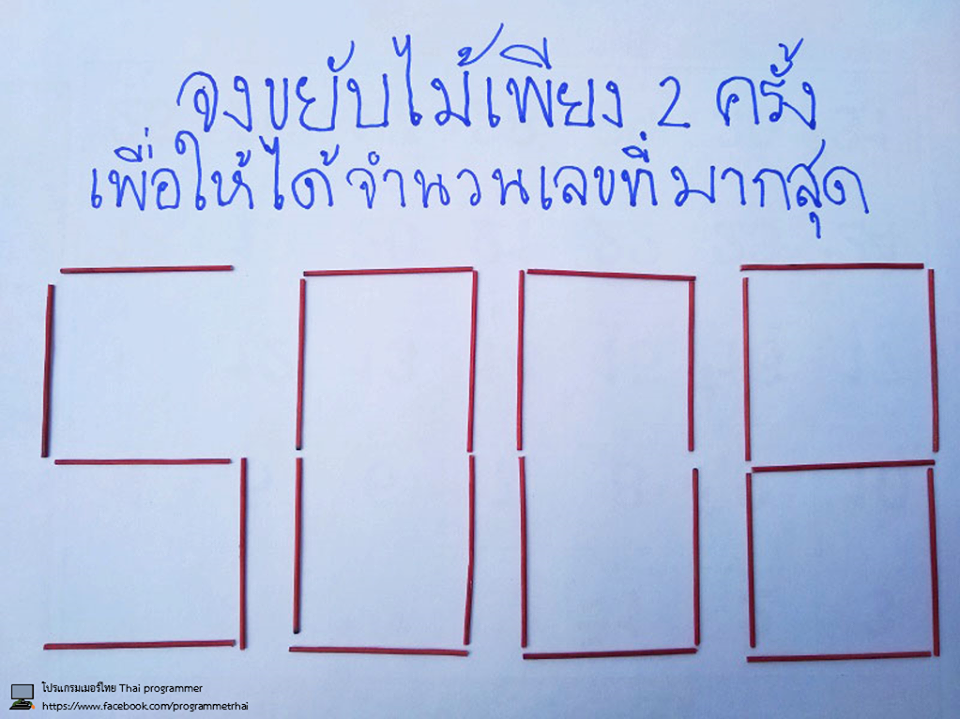 จงขยับไม้เพียง 2 ครั้ง
เพื่อให้ได้จำนวนเลขที่มากสุด
5008
โปรแกรมเมอร์ไทย Thai programmer
https://www.facebook.com/programmetrhai